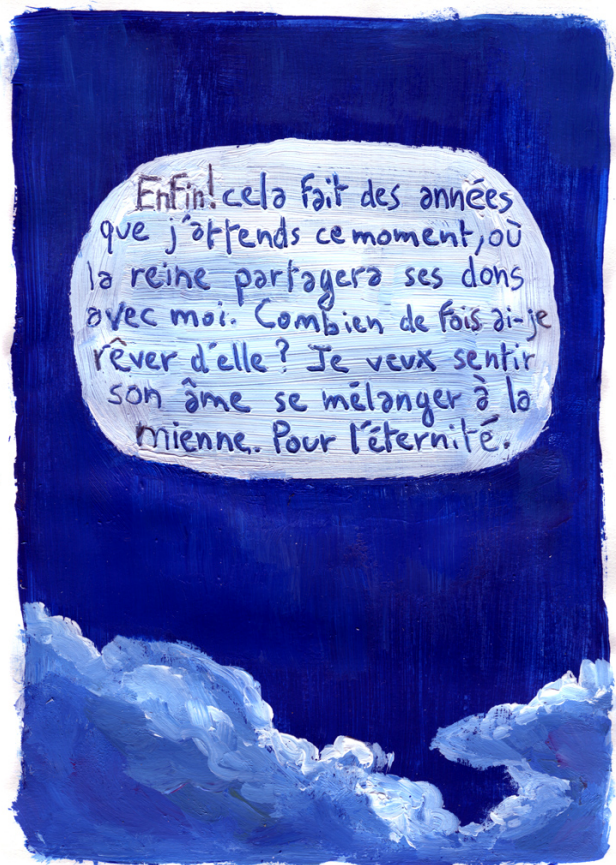 Enfin! cela fait des années
que j'attends ce moment, où
la reine partagera ses dons
avec moi. Combien de fois ai-je
rêver d'elle? Je veux sentir
son âme se mélanger à la
mienne. Pour l'éternité.